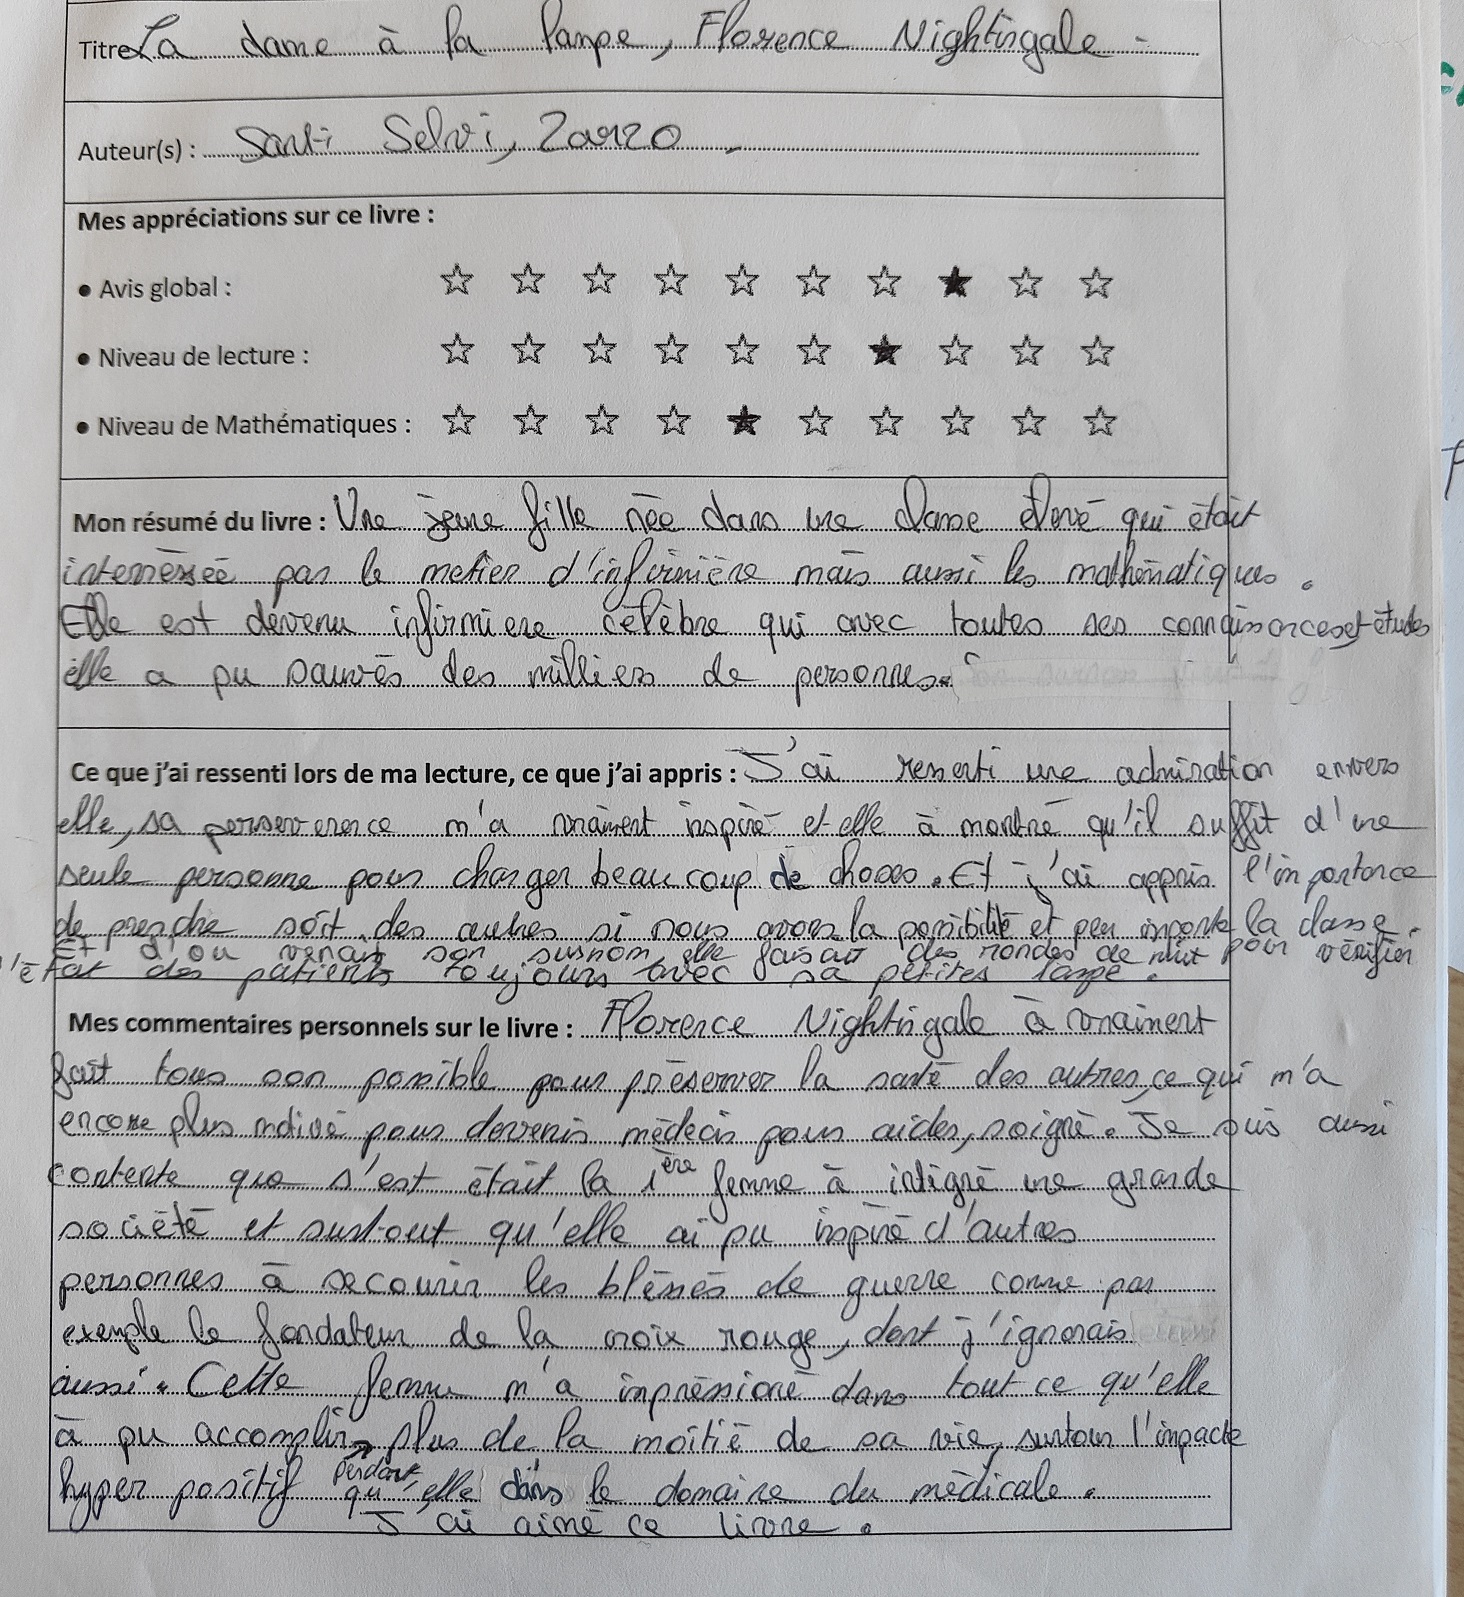 Titre La dame à la lampe, Florence Nightingale -
Auteur(s) : Santi Selvi, Zarzo
Mes appréciations sur ce livre :
• Avis global : ☆ ☆ ☆ ☆ ☆ ☆ ☆ ★ ☆ ☆
• Niveau de lecture : ☆ ☆ ☆ ☆ ☆ ☆ ★ ☆ ☆ ☆
• Niveau de Mathématiques : ☆ ☆ ☆ ☆ ★ ☆ ☆ ☆ ☆ ☆
Mon résumé du livre : Une jeune fille née dans une classe élevé qui était
interréssée par le metier d'infirmière mais aussi les mathématiques.
Elle est dévenu infirmiere célèbre qui avec toutes ses connaissances et études
elle a pu sauvés des milliers de personnes.
Ce que j'ai ressenti lors de ma lecture, ce que j'ai appris : J'ai ressenti une admiration envers
elle, sa perseverence m'a vraiment inspiré et elle à montré qu'il suffit d'une
seule personne pour changer beaucoup de choses. Et j'ai appris l'importance
de prendre soit des autres si nous avons la possibilité et peu importe la classe.
Et d'ou venais son surnom, elle faisait des rondes de nuit pour vérifier
l'état des patients toujours avec sa petites lampe.
Mes commentaires personnels sur le livre : Florence Nightingale à vraiment
fait tous son possible pour préserver la santé des autres, ce qui m'a
encore plus motivé pour devenis médecin pour aider, soigné. Je suis aussi
contente que s'est était la 1ère femme à intégré une grande
société et surtout qu'elle ai pu inspiré d'autres
personnes à secourir les bléssés de guerre comme par
exemple le fondateur de la croix rouge, dont j'ignorais
aussi. Cette femme m'a inpréssioné dans tout ce qu'elle
à pu accomplir pendant plus de la moitié de sa vie, surtout l'impacte
hyper positif qu'elle dans le domaine du médicale.
J'ai aimé ce livre.